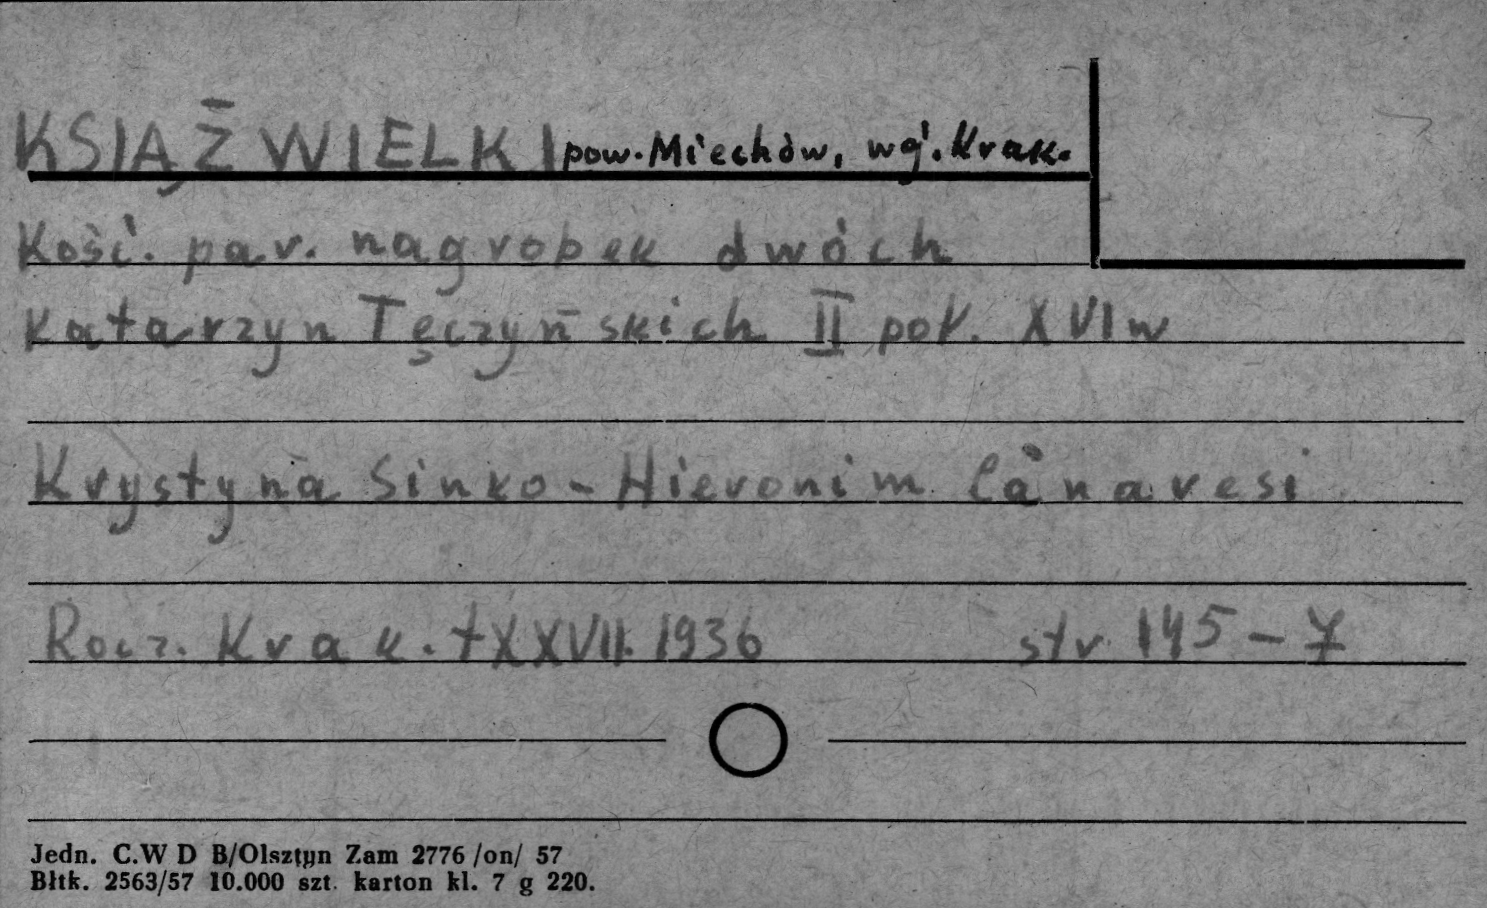 KSIĄŻ WIELKI pow. Miechów, wój. Krak.
Kość. par. nagrobek dwóch
Katarzyn Tęczyńskich II poł. XVI w
Krystyna Sinko - Hieronim Canavesi
Rocz. Krak. t XXVII. 1936 str 145-7
Jedn. C.W D B/Olsztyn Zam 2776 /on/ 57
Błtk. 2563/57 10.000 szt. karton kl. 7 g 220.